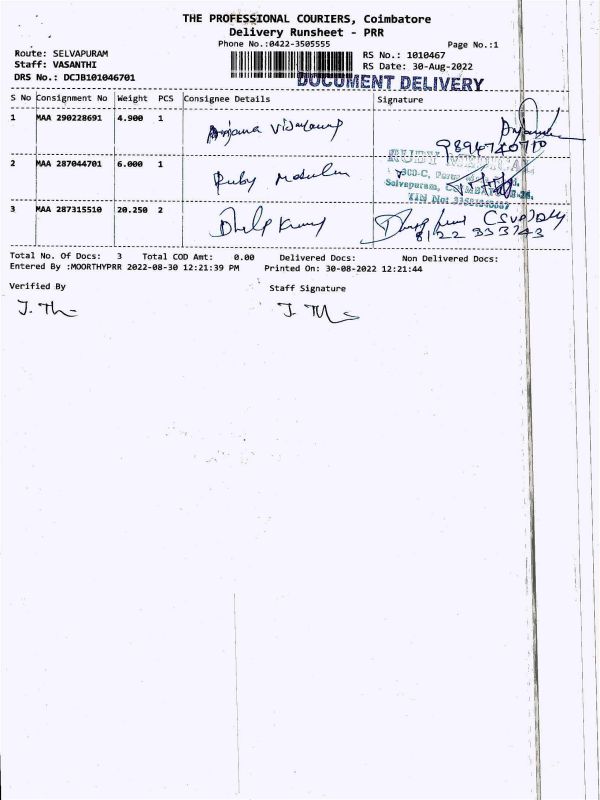 THE PROFESSIONAL COURIERS, Coimbatore
Delivery Runsheet - PRR
Phone No.:0422-3505555
Page No.:1
Route: SELVAPURAM
RS No.: 1010467
Staff: VASANTHI
RS Date: 30-Aug-2022
DRS No.: DCJB101046701
DOCUMENT DELIVERY
S No Consignment No Weight PCS Consignee Details Signature
1 MAA 290228691 4.900 1
9894740710
2 MAA 287044701 6.000 1 Ruby
RUBY MEDICAL
Selvapuram,
3 MAA 287315510 20.250 2
8122 333743
Total No. Of Docs: 3 Total COD Amt: 0.00 Delivered Docs: Non Delivered Docs:
Entered By :MOORTHYPRR 2022-08-30 12:21:39 PM Printed On: 30-08-2022 12:21:44
Verified By Staff Signature